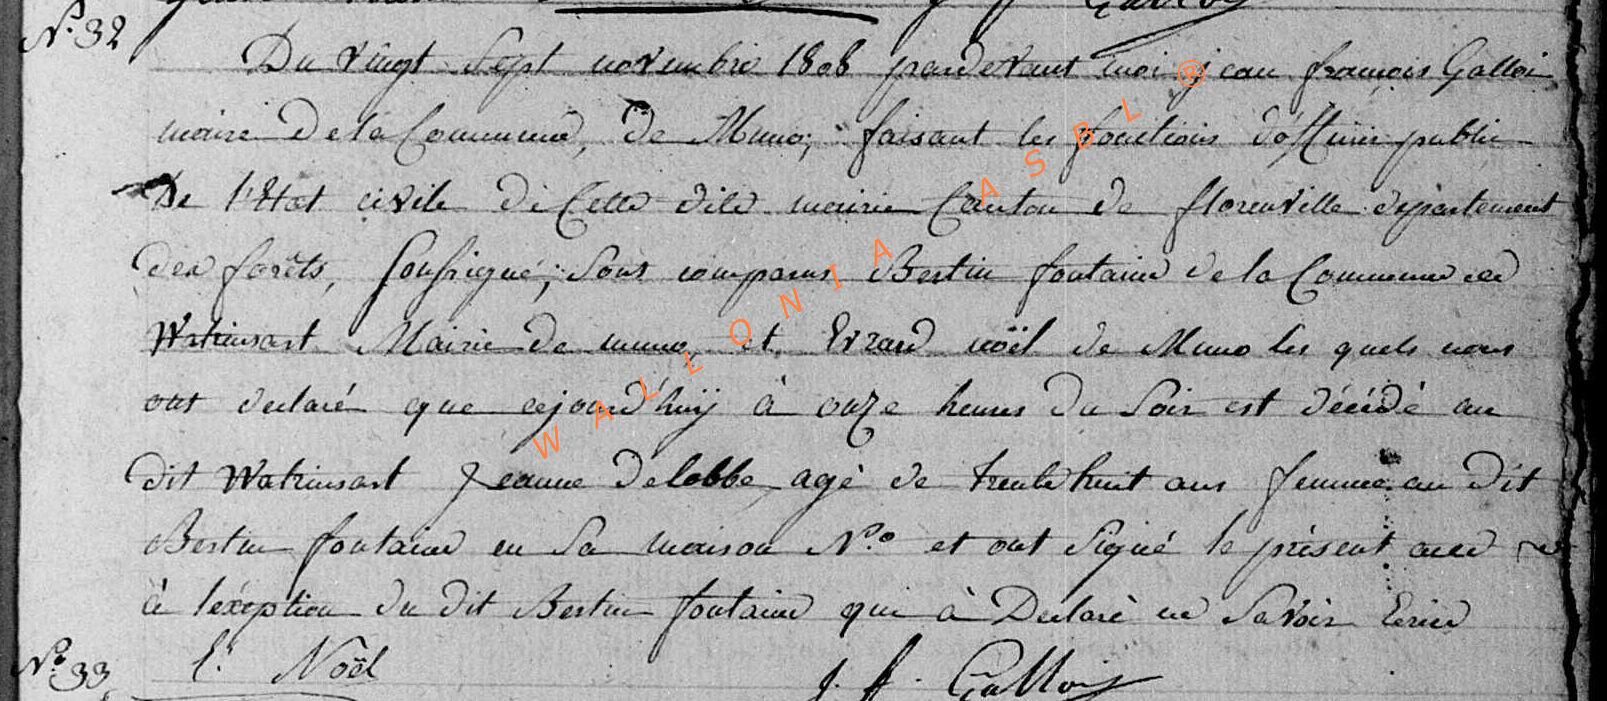 N.º 32
Du vingt Sept novembre 1808 pardevant moi jean françois Galloi
maire De la Commune, De Muno; faisant les fonctions d'officier public
De l'Etat civile De Cette dite mairie Canton de florenville departement
des forêts, Soussigné; Sont comparus Bertin fontaine de la Commune de
Watrinsart Mairie de muno et Evrard noël de Muno les quels nous
ont declaré que cejourd'huij à onze heures du Soir est décédé au
dit Watrinsart Jeanne Delobbe, agé de trente huit ans femme au dit
Bertin fontaine en Sa maison N.º et ont Signé le présent avec
à l'exeption du dit Bertin fontaine qui à Declaré ne Savoir Ecrire
N.º 33
E. Noël
J. f. Galloi
WALLONIA ASBL ®